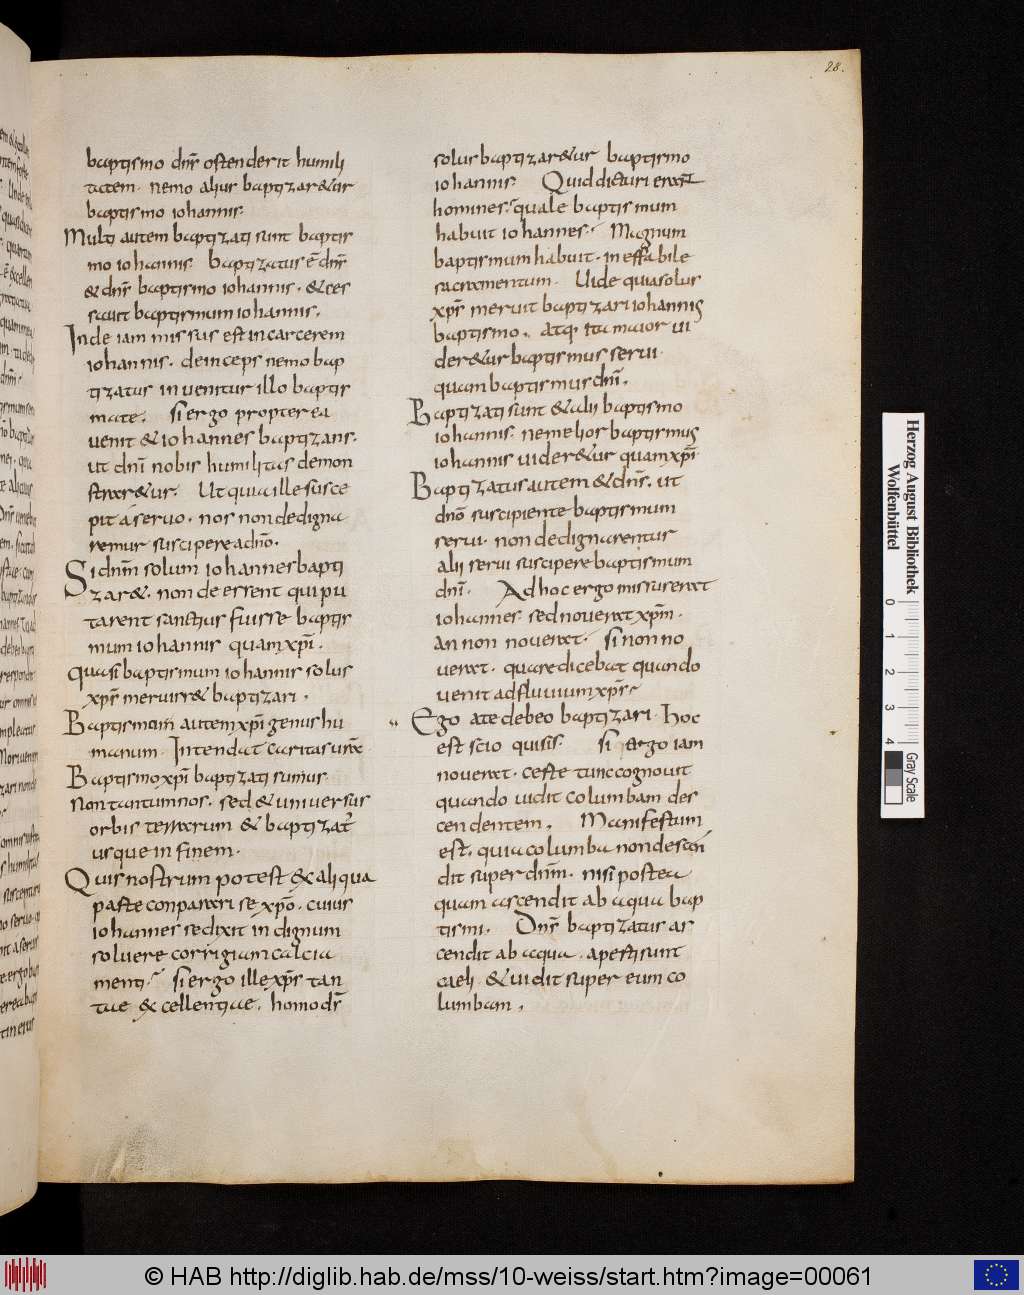 28.
baptismo dn̄s ostenderit humili
tatem· nemo alius baptizaretur
baptismo iohannis·
Multi autem baptizati sunt baptis
mo iohannis· baptizatus ē dn̄s
& dn̄s baptismo iohannis· & ces
sauit baptismum iohannis·
Inde iam missus est in carcerem
iohannis· deinceps nemo bap
tizatus inuenitur illo baptis
mate· si ergo propterea
uenit & iohannes baptizans·
ut dnī nobis humilitas demon
straretur· Ut quia ille susce
pit a seruo· nos non dedigna
remur suscipere a dnō·
Si dnm̄ solum iohannes bapti
zaret· non deessent qui pu
tarent sanctius fuisse baptis
mum iohannis quam xp̄i·
quasi baptismum iohannis solus
xp̄s meruisset baptizari·
Baptismum autem xp̄i genus hu
manum· Intendat caritas urā
Baptismo xp̄i baptizati sumus·
Non tantum nos· sed & uniuersus
orbis terrarum & baptizat̄
usque in finem·
Quis nostrum potest ex aliqua
parte conparari se xp̄o· cuius
iohannes se dixit indignum
soluere corrigiam calcia
menti· si ergo ille xp̄s tan
tae excellentiae· homo ds̄
solus baptizaretur baptismo
iohannis· Quid dicturi erant
homines· quale baptismum
habuit iohannes· Magnum
baptismum habuit· ineffabile
sacramentum· Uide quia solus
xp̄s meruit baptizari iohannis
baptismo· atq· ita maior ui
deretur baptismus serui·
quam baptismus dnī·
Baptizati sunt & alii baptismo
iohannis· ne melior baptismus
iohannis uideretur quam xp̄i
Baptizatus autem & dn̄s· ut
dnō suscipiente baptismum
serui· non dedignarentur
alii serui suscipere baptismum
dnī· Ad hoc ergo missus erat
iohannes· sed nouerat xp̄m·
an non nouerat· si non no
uerat· quare dicebat quando
uenit ad fluuium xp̄s
Ego a te debeo baptizari· Hoc
est scio quis sis· si ergo iam
nouerat· certe tunc cognouit
quando uidit columbam des
cendentem· Manifestum
est· quia columba non descen
dit super dnm̄· nisi postea
quam ascendit ab aqua bap
tismi· Dn̄s baptizatus as
cendit ab aqua· aperti sunt
caeli· & uidit super eum co
lumbam·
Herzog August Bibliothek
Wolfenbüttel
0 1 2 3 4
Gray Scale
© HAB http://diglib.hab.de/mss/10-weiss/start.htm?image=00061